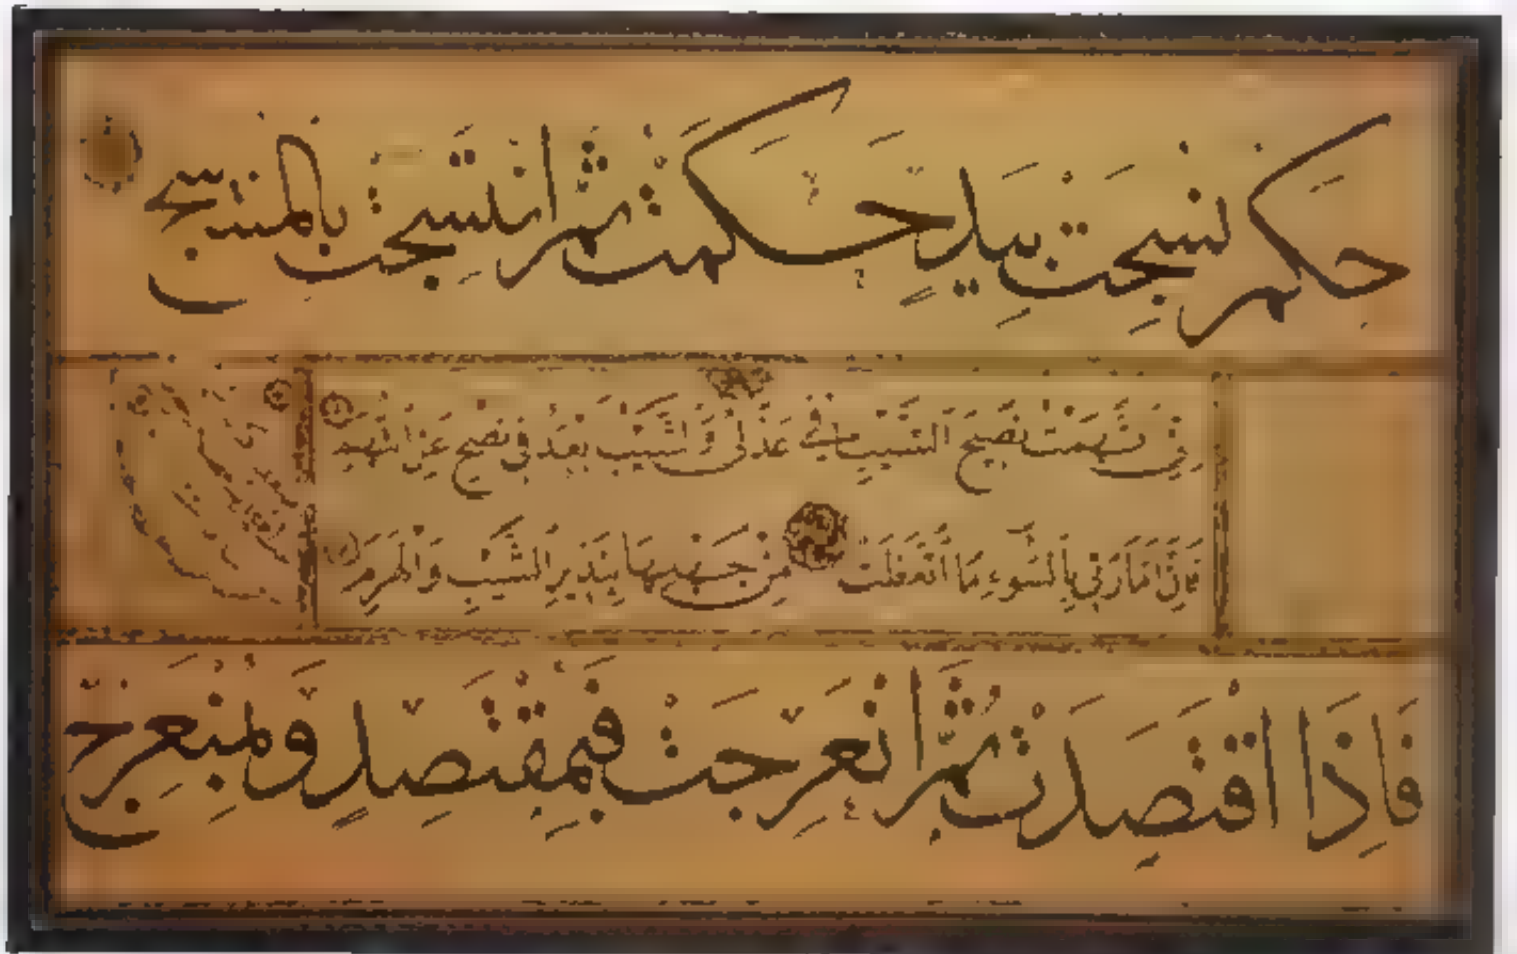 حِكَمٌ نُسِجَتْ بِيَدٍ حَكَمَتْ ثُمَّ انْتَسَجَتْ بِالْمُنْتَسِجِ
اِنِّى اتَّهَمْتُ نَصِيحَ الشَّيْبِ فِي عَذَلِى وَالشَّيْبُ اَبْعَدُ فِى نُصْحٍ عَنِ التُّهَمِ
فَاِنَّ اَمَّارَتِى بِالسُّوءِ مَا اتَّعَظَتْ مِنْ جَهْلِهَا بِنَذِيرِ الشَّيْبِ وَالْهَرَمِ
فَاِذَا اقْتَصَدَتْ ثُمَّ انْعَرَجَتْ فَبِمُقْتَصِدٍ وَبِمُنْعَرِجِ